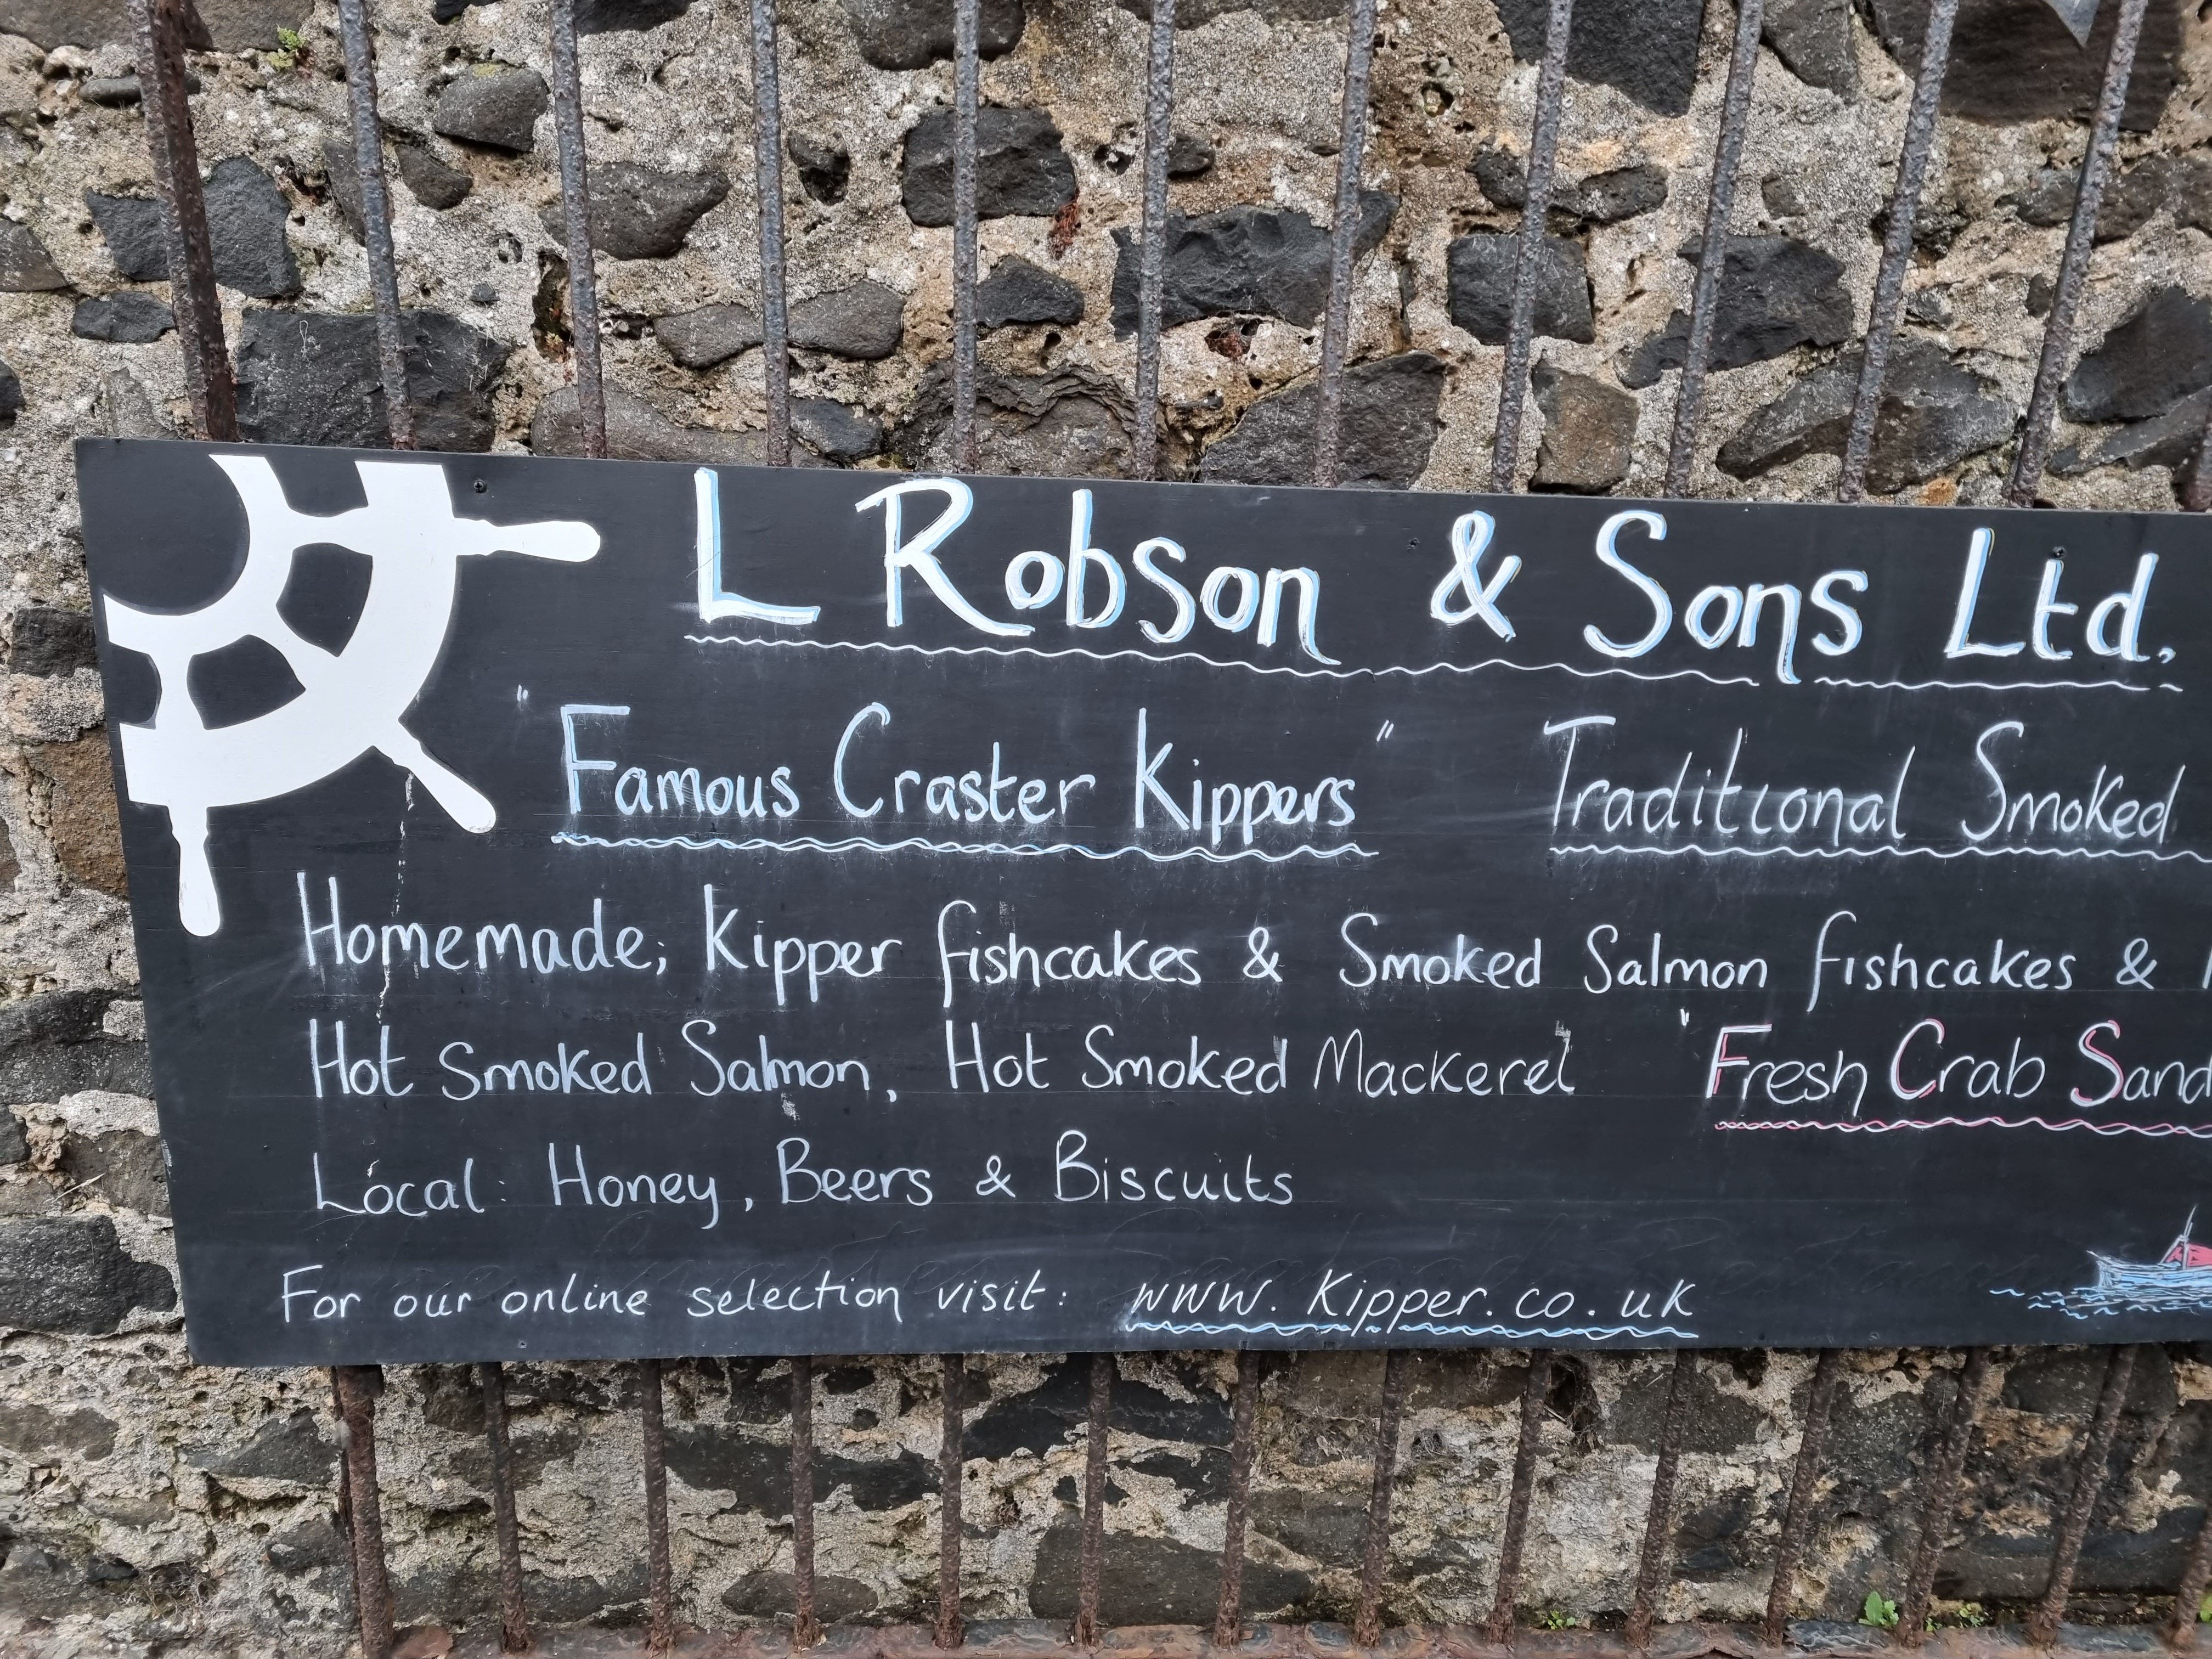 L Robson & Sons Ltd.
"Famous Craster Kippers" Traditional Smoked
Homemade; Kipper fishcakes & Smoked Salmon fishcakes &
Hot Smoked Salmon, Hot Smoked Mackerel "Fresh Crab Sand
Local: Honey, Beers & Biscuits
For our online selection visit: www.kipper.co.uk